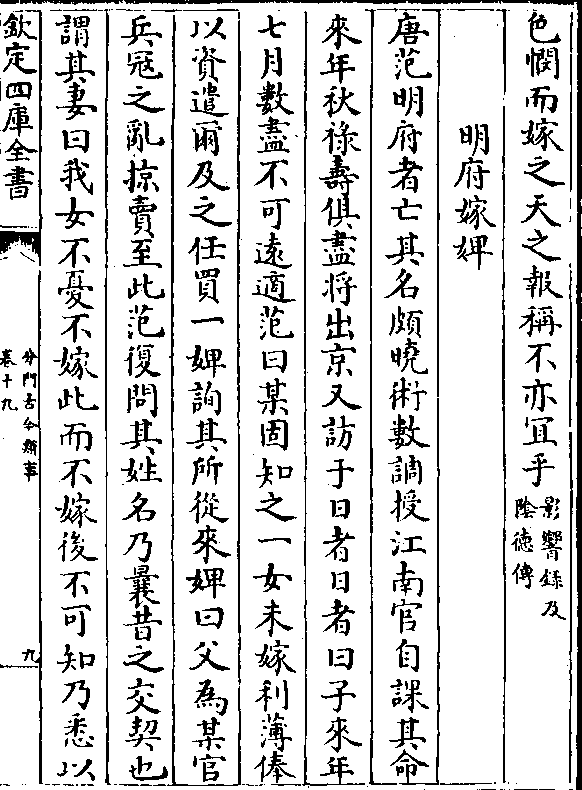 色憫而嫁之天之報稱不亦宜乎影響錄及
陰德傳
明府嫁婢
唐范明府者亡其名頗曉術數調授江南官自課其命
來年秋祿壽俱盡將出京又訪于日者日者曰子來年
七月數盡不可遠適范曰某固知之一女未嫁利薄俸
以資遣爾及之任買一婢詢其所從來婢曰父為某官
兵寇之亂掠賣至此范復問其姓名乃曩昔之交契也
謂其妻曰我女不憂不嫁此而不嫁後不可知乃悉以
欽定四庫全書
分門古今類事
卷十九
九